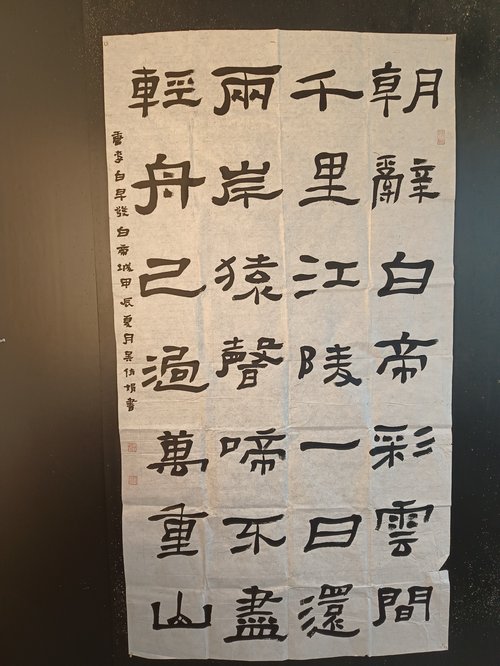 朝辭白帝彩雲間
千里江陵一日還
兩岸猿聲啼不盡
輕舟已過萬重山
唐李白早發白帝城甲辰夏月吳娟書